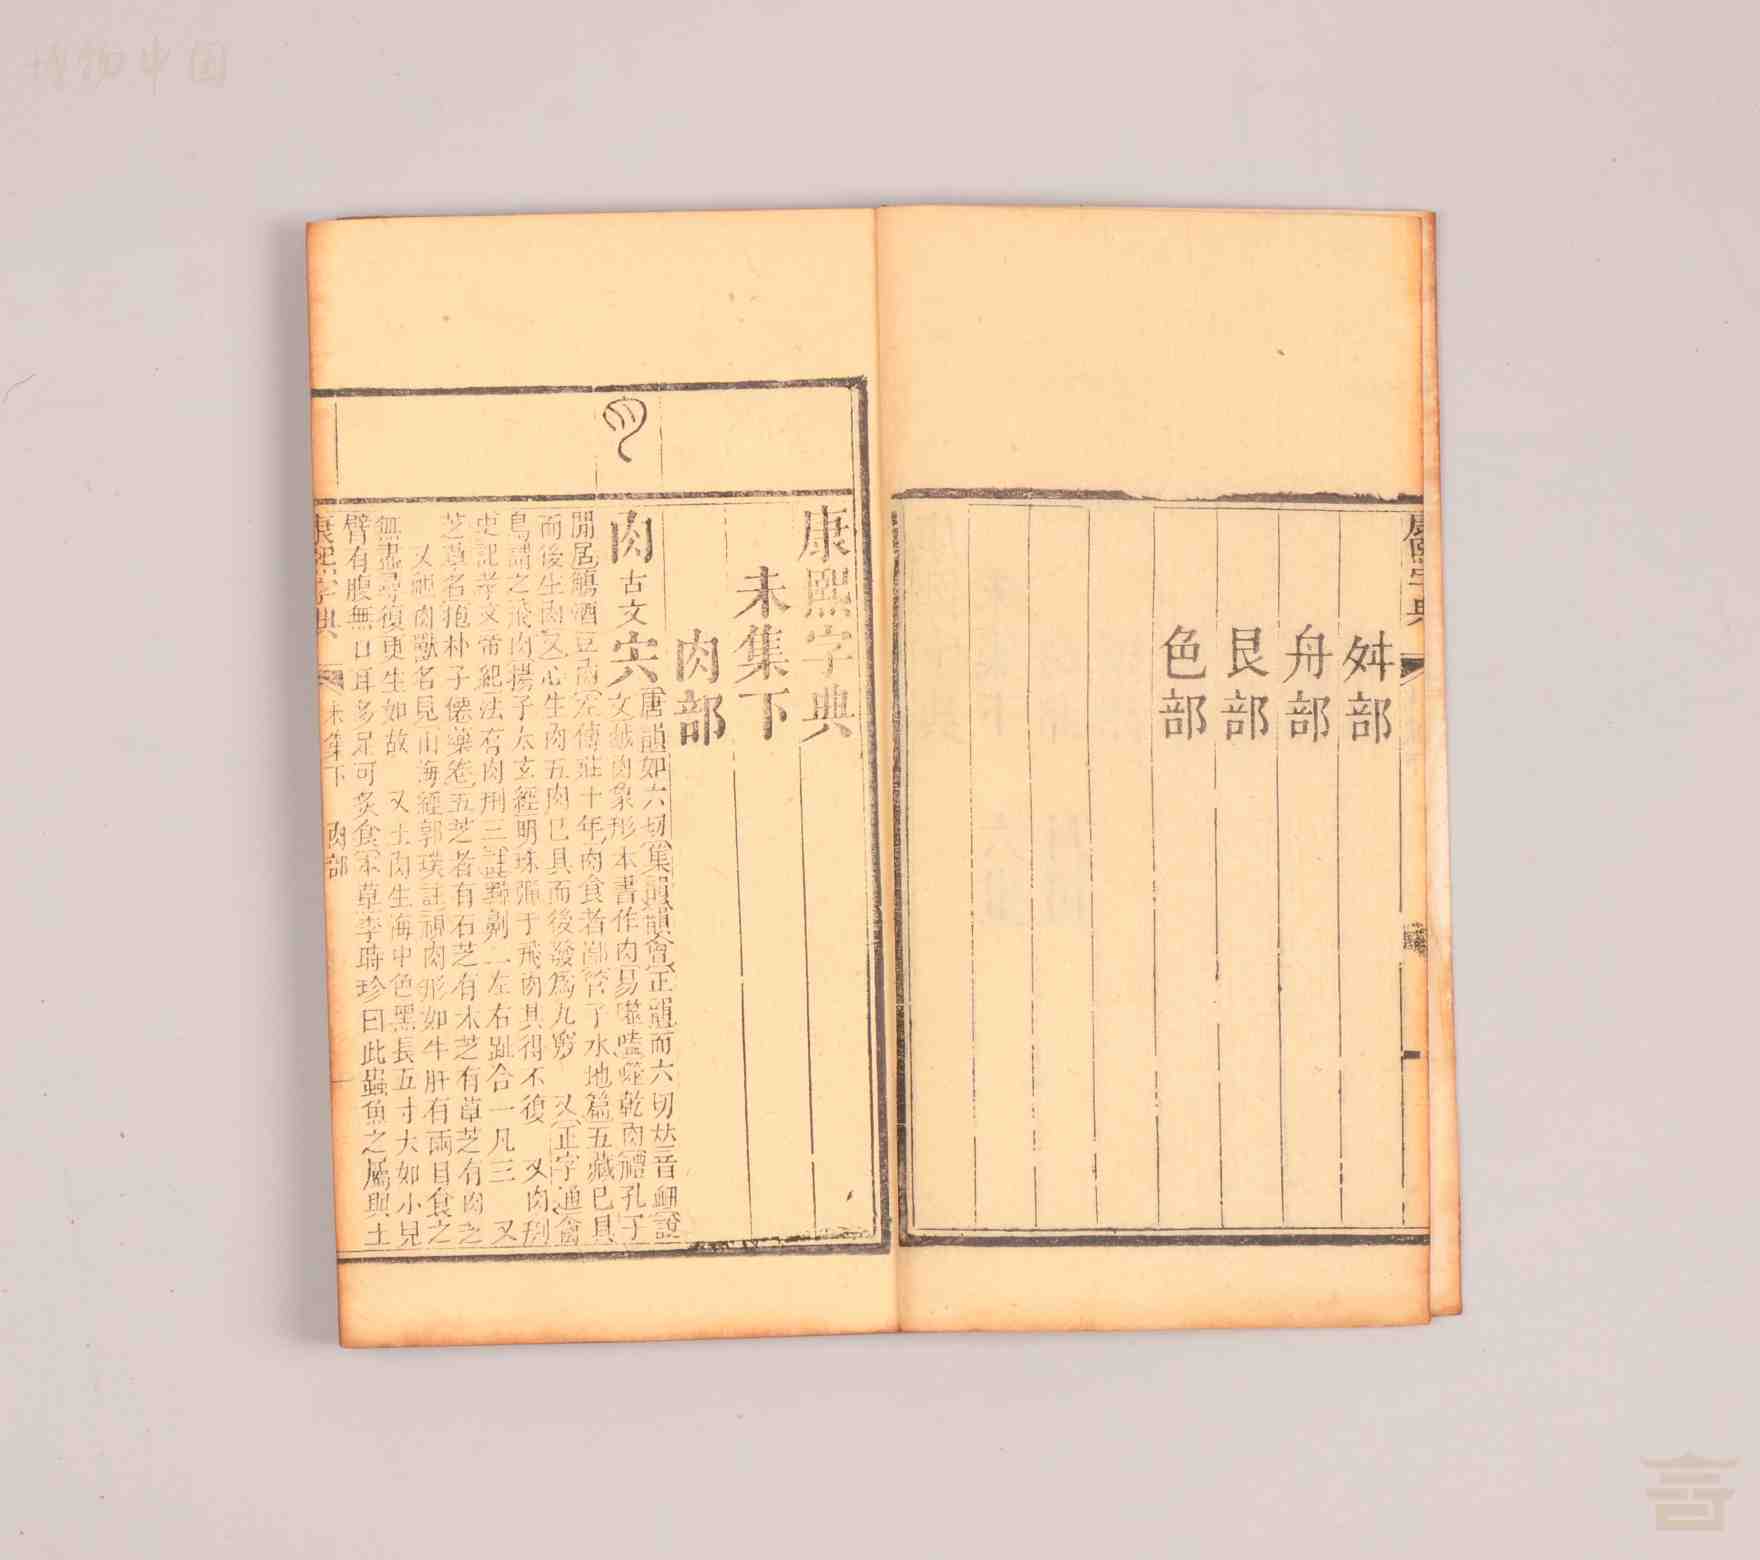 博物中国
康熙字典
舛部
舟部
艮部
色部
康熙字典
未集下
肉部
肉 古文 宍
唐韻如六切集韻韻會正韻而六切𠀤音衄說
文胾肉象形本書作肉易噬嗑噬乾肉禮孔子
閒居觴酒豆肉左傳莊十年肉食者鄙管子水地篇五藏已具
而後生肉又心生肉五肉已具而後發爲九竅 又正字通禽
鳥謂之飛肉揚子太玄經明珠彈于飛肉其得不復 又肉刑
史記孝文帝紀法有肉刑三註黥劓二左右趾合一凡三 又
芝草名抱朴子僊藥卷五芝者有石芝有木芝有草芝有肉芝
又視肉獸名見山海經郭璞註視肉形如牛肝有兩目食之
無盡尋復更生如故 又土肉生海中色黑長五寸大如小兒
臂有腹無口耳多足可炙食本草李時珍曰此蟲魚之屬與土
康熙字典 未集下 肉部 一